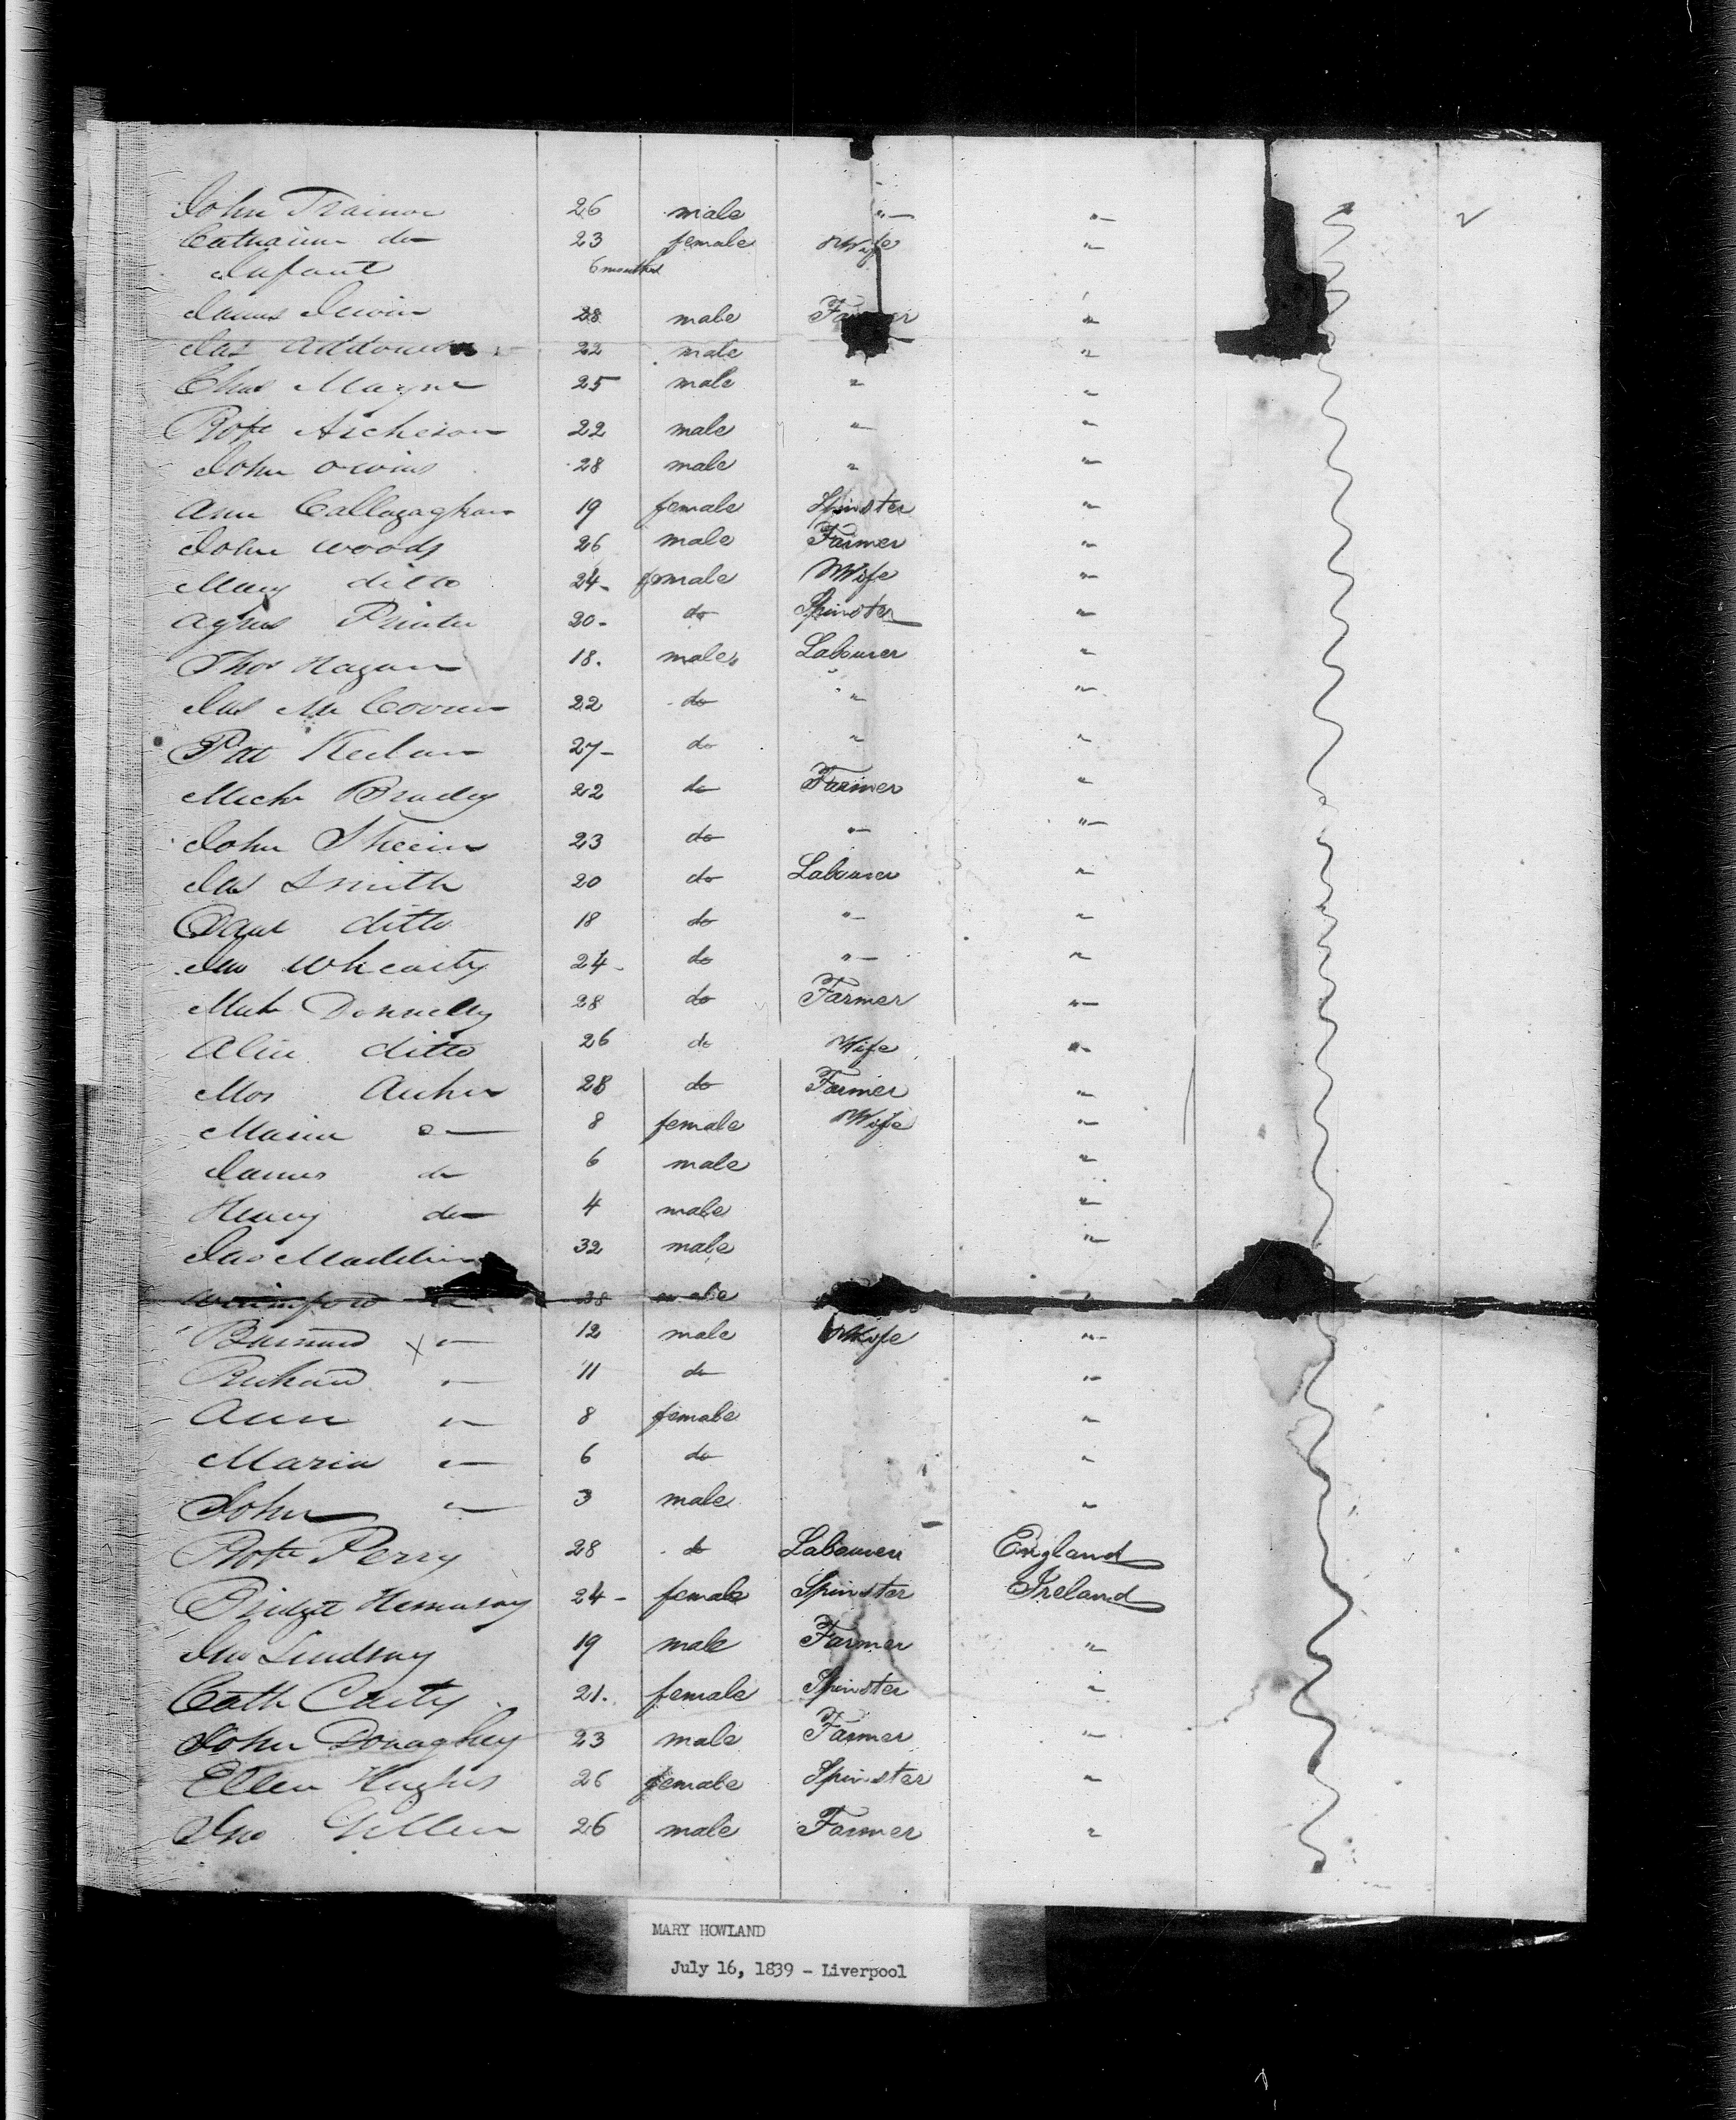 John Trainor 26 male "— "—
Catharine do 23 female Wife "
Infant 6 months
James Irwin 28 male Farmer "
Jas 22 male "
Chas Mayne 25 male " "
Robt Aicheson 22 male " "
John Owins 28 male " "
Ann Callagaghan 19 female Spinster "
John Woods 26 male Farmer "
Mary ditto 24- female Wife "
Agnes Printer 20- do Spinster "
Thos Hagan 18. male Labourer "
Jas Mc 22 do " "
Pat Keelan 27- do " "
Michl Brady 22 do Farmer "
John Sheein 23 do "— "—
Jas Smith 20 do Labourer "
ditto 18 do "— "
Jno Whearty 24- do "— "
Donnelly 28 do Farmer "—
ditto 26 do Wife "
28 do Farmer "
Maria "— 8 female Wife "
James do 6 male "
Henry do 4 male "
Jas 32 male "
38 male "
Barnard X "— 12 male Wife "
Richard "— 11 do "
Ann "— 8 female "
Maria "— 6 do "
John "— 3 male "
Robt Perry 28 do Labourer England
Bridget 24- female Spinster Ireland
Jno Lindsay 19 male Farmer "
Cath Carty 21. female Spinster "
John Donaghey 23 male Farmer "
Ellen Hughes 26 female Spinster "
Jno Gillen 26 male Farmer "
MARY HOWLAND
July 16, 1839 - Liverpool